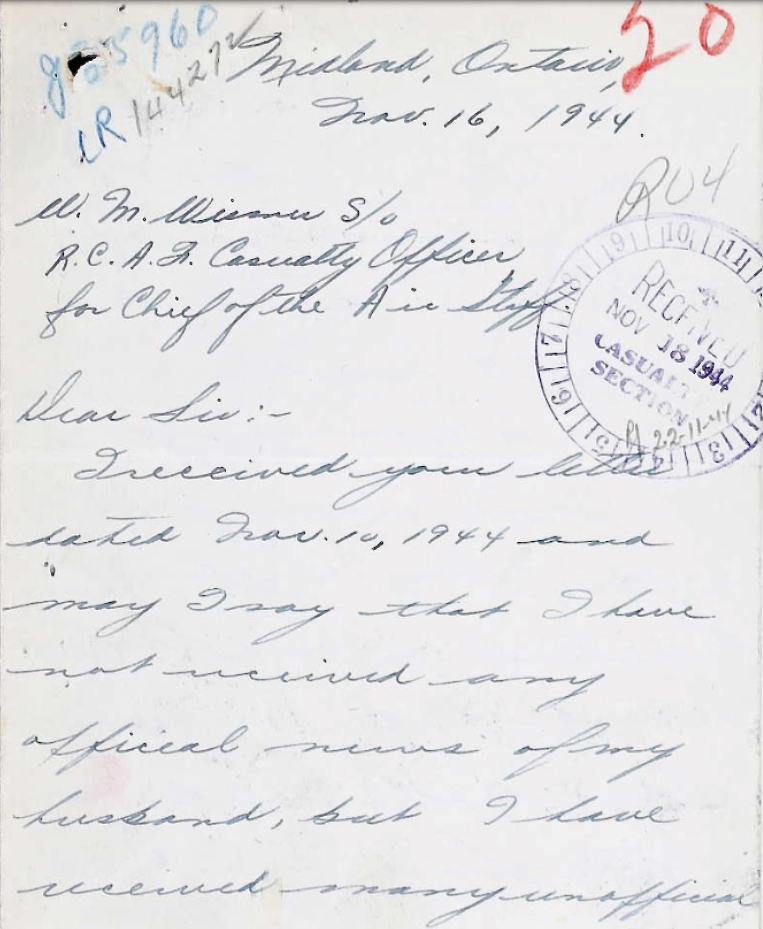 J35960
20
LR 144272
Midland, Ontario,
Nov. 16, 1944.
R04
W. M. Wismer S/o
R.C.A.F. Casualty Officer
for Chief of the Air Staff
RECEIVED
NOV 18 1944
CASUALTY
SECTION
PA 22-11-44
Dear Sir:-
I received your letter
dated Nov. 10, 1944 and
may I say that I have
not received any
official news of my
husband, but I have
received many unofficial